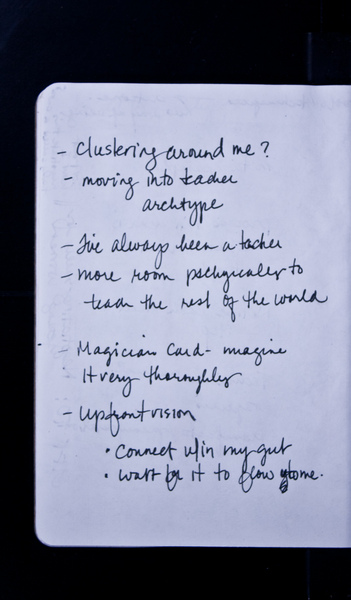 - Clustering around me?
- moving into teacher
archtype
- I've always been a teacher
- more room pschycicaley to
teach the rest of the world
- Magician Card - imagine
it very thoroughly
- Upfront vision
• Connect w/in my gut
• wait for it to flow to me.